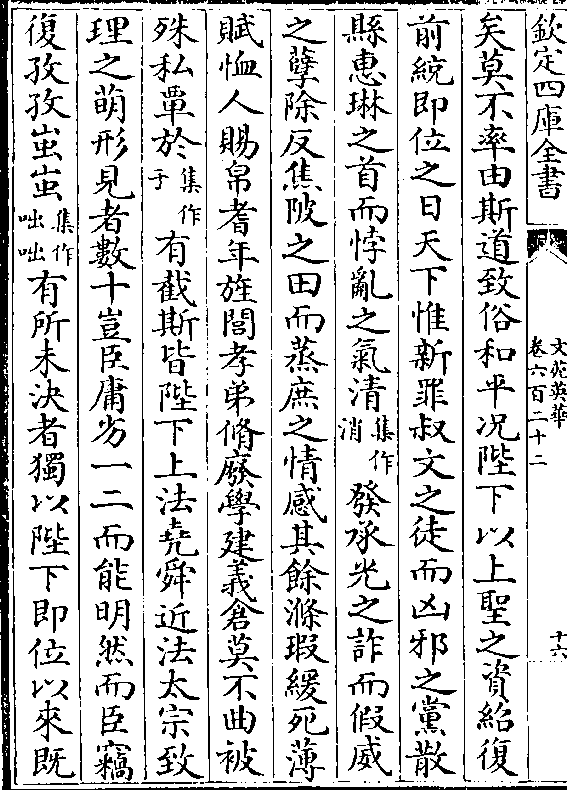 欽定四庫全書
文苑英華
卷六百二十二
十六
矣莫不率由斯道致俗和平况陛下以上聖之資紹復
前統即位之日天下惟新罪叔文之徒而凶邪之黨散
縣惠琳之首而悖亂之氣清集作消發承光之詐而假威
之孽除反焦陂之田而蒸庶之情感其餘滌瑕緩死薄
賦恤人賜帛耆年旌閭孝弟脩廢學建義倉莫不曲被
殊私覃於集作于有截斯皆陛下上法堯舜近法太宗致
理之萌形見者數十豈臣庸劣一二而能明然而臣竊
復孜孜蚩蚩集作咄咄有所未決者獨以陛下即位以來既